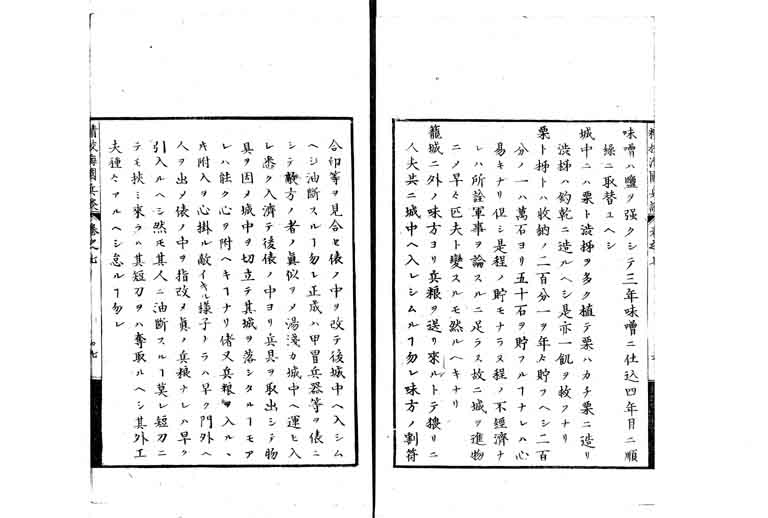 味噌ハ鹽ヲ强クシテ三年味噌ニ仕込四年目ニ順
繰ニ取替ユヘシ
城中ニハ栗ト澁柹ヲ多ク植テ栗ハカチ栗ニ造リ
澁柹ハ釣乾ニ造ルヘシ是亦一飢ヲ救フナリ
栗ト柹トハ收納ノ二百分一ヲ年々貯フヘシ二百
分ノ一ハ萬石ヨリ五十石ヲ貯フルヿナレハ心
易キナリ但シ是程ノ貯モナラヌ程ノ不經濟ナ
レハ所詮軍事ヲ論スルニ足ラス故ニ城ヲ進物
ニノ早々匹夫ト變スルモ然ルヘキナリ
籠城ニ外ノ味方ヨリ兵粮ヲ送リ來ルトテ猥リニ
人夫共ニ城中ヘ入レシムルヿ勿レ味方ノ割符
合印等ヲ見合セ俵ノ中ヲ改テ後城中ヘ入シム
ヘシ油斷スルヿ勿レ正成ハ甲冑兵器等ヲ俵ニ
シテ敵方ノ者ノ眞似ヲメ湯淺カ城中ヘ運ヒ入
レ悉ク入濟テ後俵ノ中ヨリ兵具ヲ取出シテ物
具ヲ因メ城中ヲ切立テ其城ヲ落シタルヿモア
レハ能ク心ヲ附ヘキヿナリ偖又兵粮ヲ入ル、
附入ヲ心掛ル敵イキル樣子ノラハ早ク門外ヘ
人ヲ出メ俵ノ中ヲ指改メ眞ノ兵粮ナレハ早ク
引入ルヘシ然モ其人ニ油斷スルヿ莫レ短刀ニ
テモ挾ミ來ラハ其短刀ヲハ奪取ルヘシ其外工
夫種々アルヘシ怠ルヿ勿レ
海國兵談 卷之七